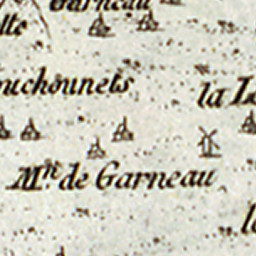 Garneau
lle
uchounets
la L
M.ⁿ de Garneau
l